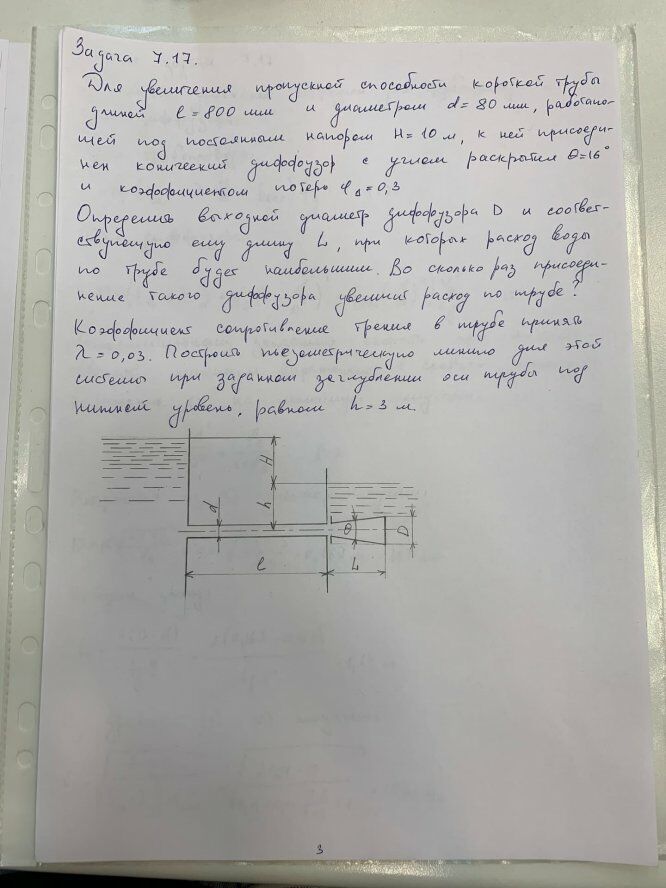 Задача 7.17.
Для увеличения пропускной способности короткой трубы
длиной l = 800 мм и диаметром d = 80 мм, работаю-
щей под постоянным напором H = 10 м, к ней присоеди-
нен конический диффузор с углом раскрытия θ = 16°
и коэффициентом потерь φд = 0,3
Определить выходной диаметр диффузора D и соответ-
ствующую ему длину L, при которых расход воды
по трубе будет наибольшим. Во сколько раз присоеди-
нение такого диффузора увеличит расход по трубе?
Коэффициент сопротивление трения в трубе принять
λ = 0,03. Построить пьезометрическую линию для этой
системы при заданном заглублении оси трубы под
нижней уровень, равном h = 3 м.
H
d
h
θ
D
l
L
3